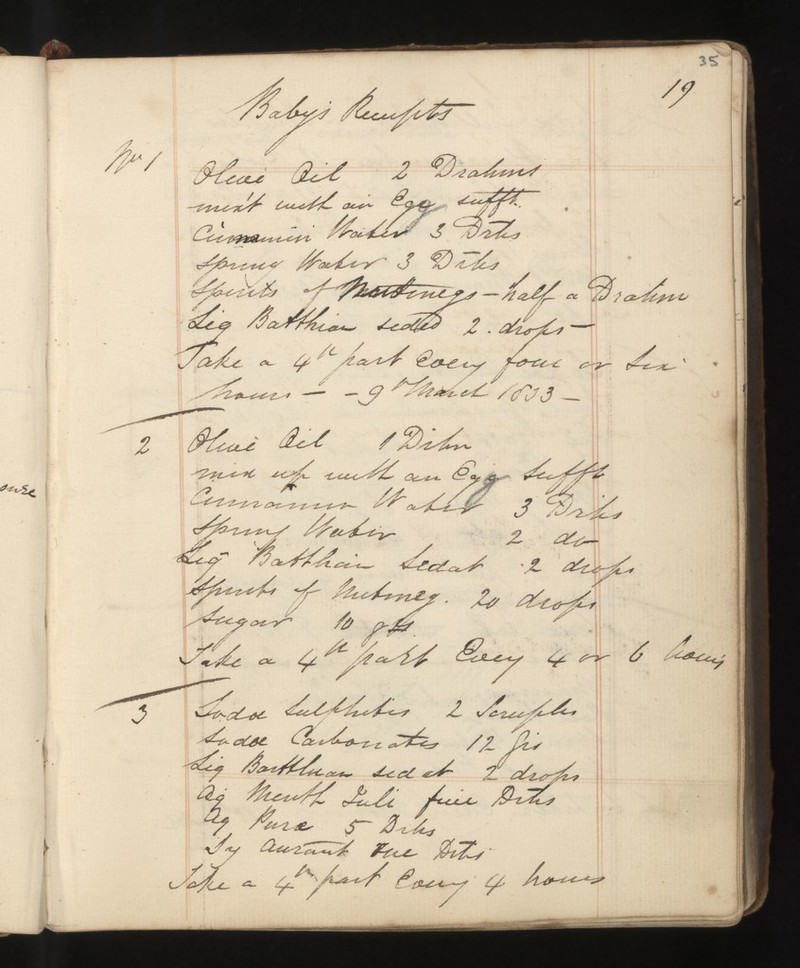 35
19
Baby's Receipts
No 1
Olive Oil 2 Drahms
mix't with an Egg sufft.
Cinnamin Water 3 Drhs
Spring Water 3 Drhs
Spirits of Nutmegs - half a Drahm
Liq Batthian sedtd 2. drops -
Take a 4th part Every four or Six
hours - - 9th March 1833 -
2 Olive Oil 1 Drhm
mix up with an Egg sufft
Cinnamin Water 3 Drhs
Spring Water 2 do
Liq Batthian Sedat 2 drops
Spirits of Nutmeg. 20 drops
Sugar 10 grs
Take a 4th part Every 4 or 6 hours
3 Sodae Sulphites 2 Scruples
Sodae Carbonates 12 grs
Liq Batthian sedat 2 drops
Aq Menth five Drhs
Aq Pura 5 Drhs
Sy Aurant Drhs
Take a 4th part Every 4 hours